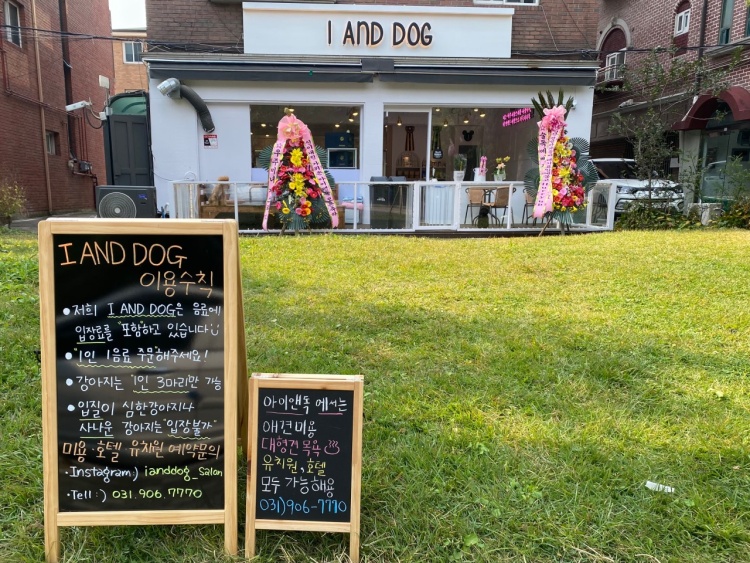 I AND DOG
I AND DOG
이용수칙
• 저희 I AND DOG은 음료에
입장료를 "포함하고 있습니다
• "1인 1음료 주문"해주세요!
• 강아지는 "1인 3마리만 가능
• 입질이 심한강아지나
사나운 강아지는 "입장불가"
미용·호텔 유치원 예약문의
·Instagram:) ianddog_salon
·Tell:) 031.906.7770
아이앤독 에서는
애견미용
대형견 목욕
유치원, 호텔
모두 가능해용
031)906-7770